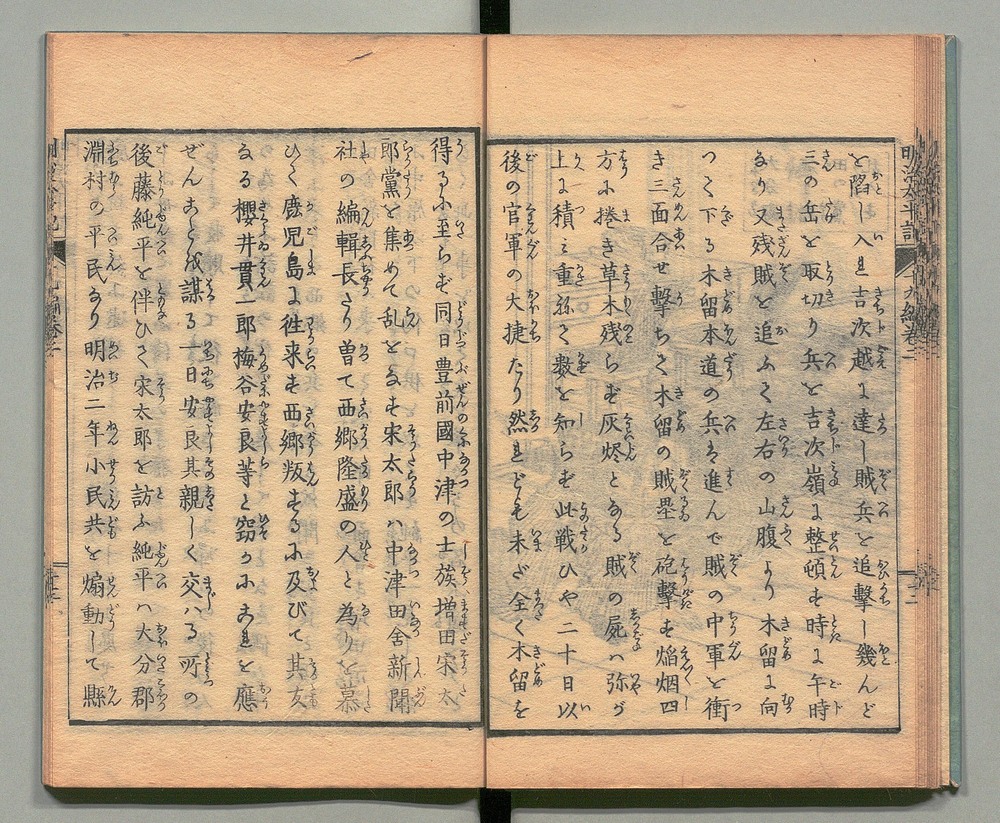 を陥し入れ吉次越に達し賊兵を追撃し幾んど
三の岳を取切り兵を吉次嶺に整頓す時に午時
なり又残賊を追ふて左右の山腹より木留に向
つて下る木留本道の兵も進んで賊の中軍を衝
き三面合せ撃ちて木留の賊塁を砲撃す焔烟四
方に捲き草木残らず灰烬となる賊の屍ハ弥が
上に積み重ねて数を知らず此戦ひや二十日以
後の官軍の大捷たり然れども未だ全く木留を
得るに至らず同日豊前國中津の士族増田宋太
郎黨を集めて乱をなす宋太郎ハ中津田舎新聞
社の編輯長たり曽て西郷隆盛の人と為りを慕
ひて鹿児島に往来す西郷叛するに及びて其友
なる櫻井貫一郎梅谷安良等と窃かにこれを應
ぜんことを謀る一日安良其親しく交ハる所の
後藤純平を伴ひて宋太郎を訪ふ純平ハ大分郡
淵村の平民なり明治二年小民共を煽動して縣